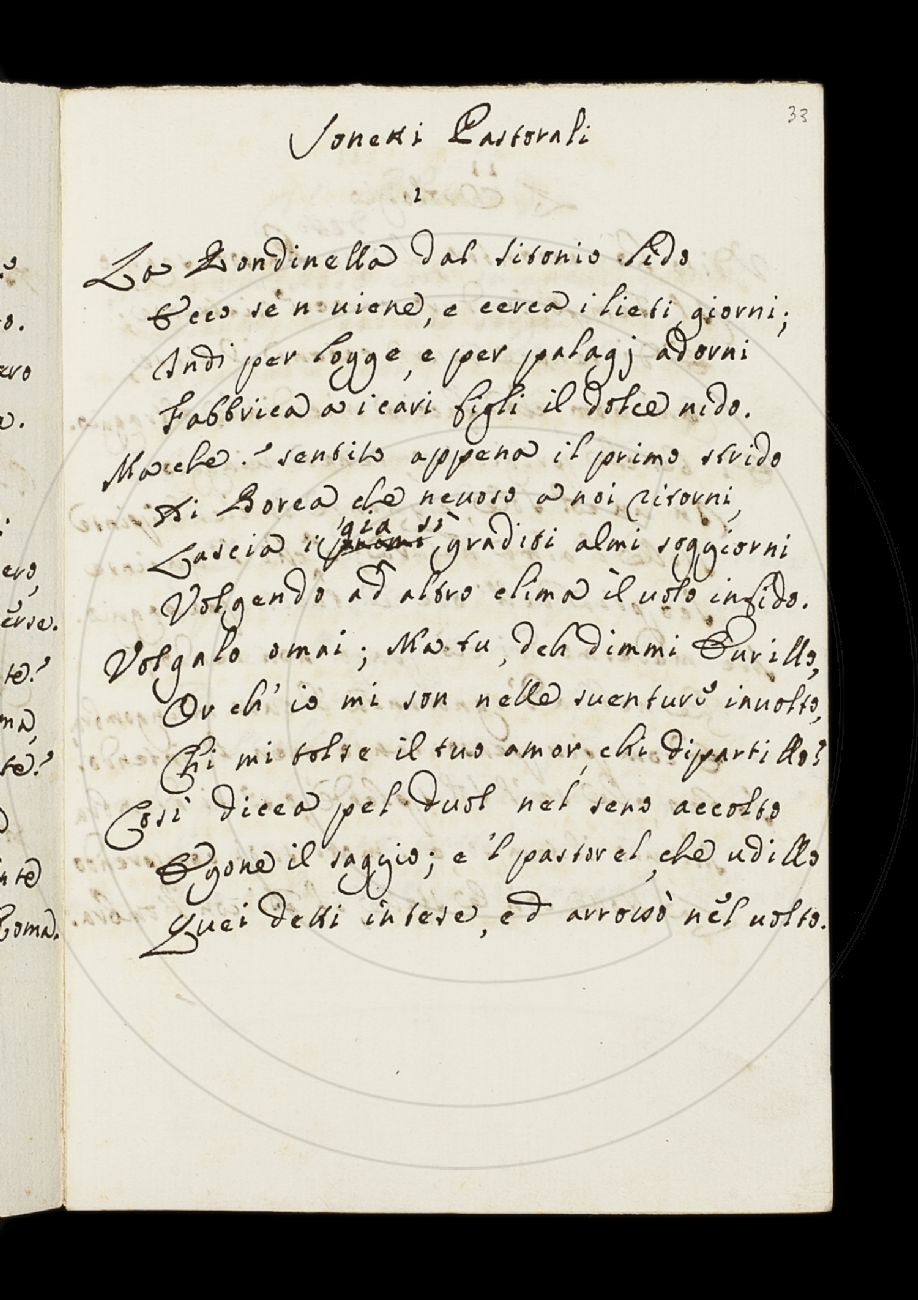 33
Sonetti Pastorali
1
La Rondinella dal sitonio lido
Ecco se n viene, e cerca i lieti giorni;
Indi per logge, e per palagj adorni
Fabbrica a i cari figli il dolce nido.
Ma che? sentito appena il primo strido
Di Borea che nevoso a noi ritorni,
già sì
Lascia i graditi almi soggiorni
Volgendo ad altro clima il volo infido.
Volgalo omai; Ma tu, deh dimmi Eurillo,
Or ch' io mi son nelle sventure involto,
Chi mi tolse il tuo amor, chi dipartillo?
Così dicea pel duol nel seno accolto
Egone il saggio; e 'l pastorel, che udillo
Quei detti intese, ed arrossò nel volto.
o.
ero
a.
ero,
erse.
te?
ma,
te?
nte
Roma.